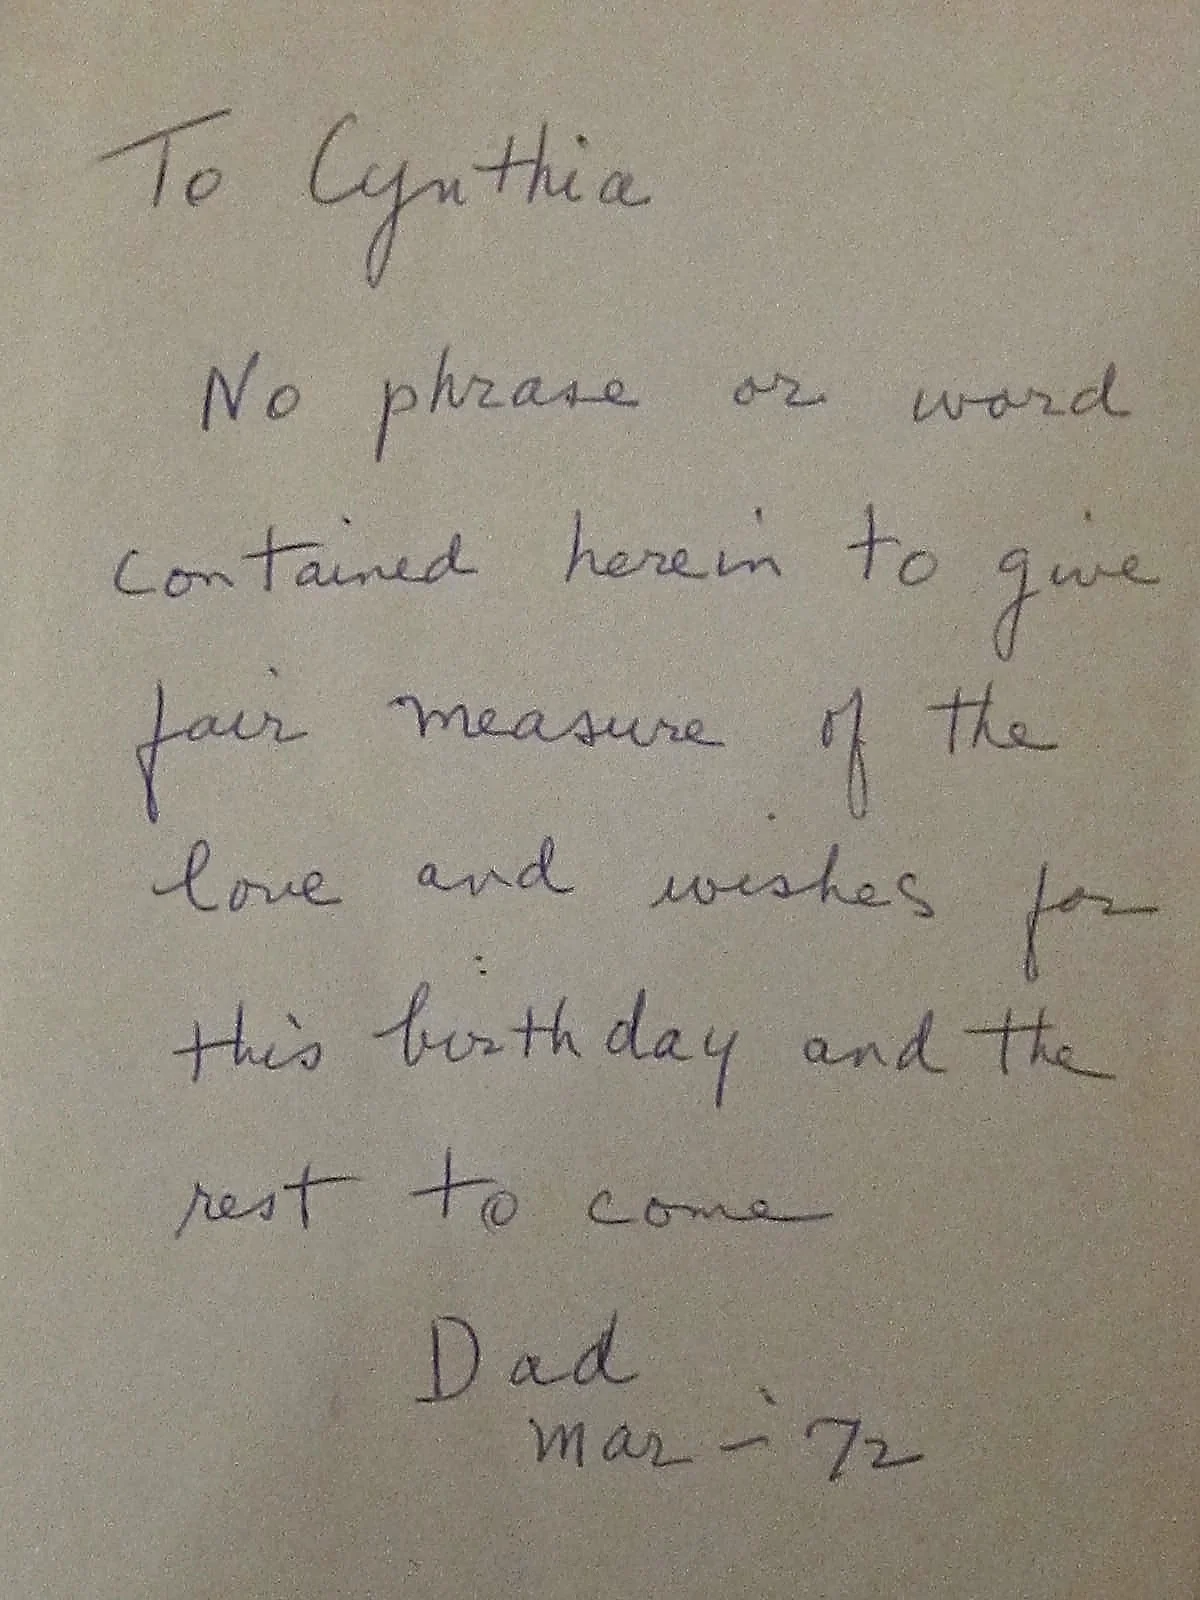 To Cynthia
No phrase or word
contained herein to give
fair measure of the
love and wishes for
this birthday and the
rest to come
Dad
Mar - '72